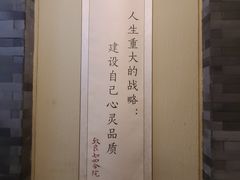 人生重大的战略：
建设自己心灵品质